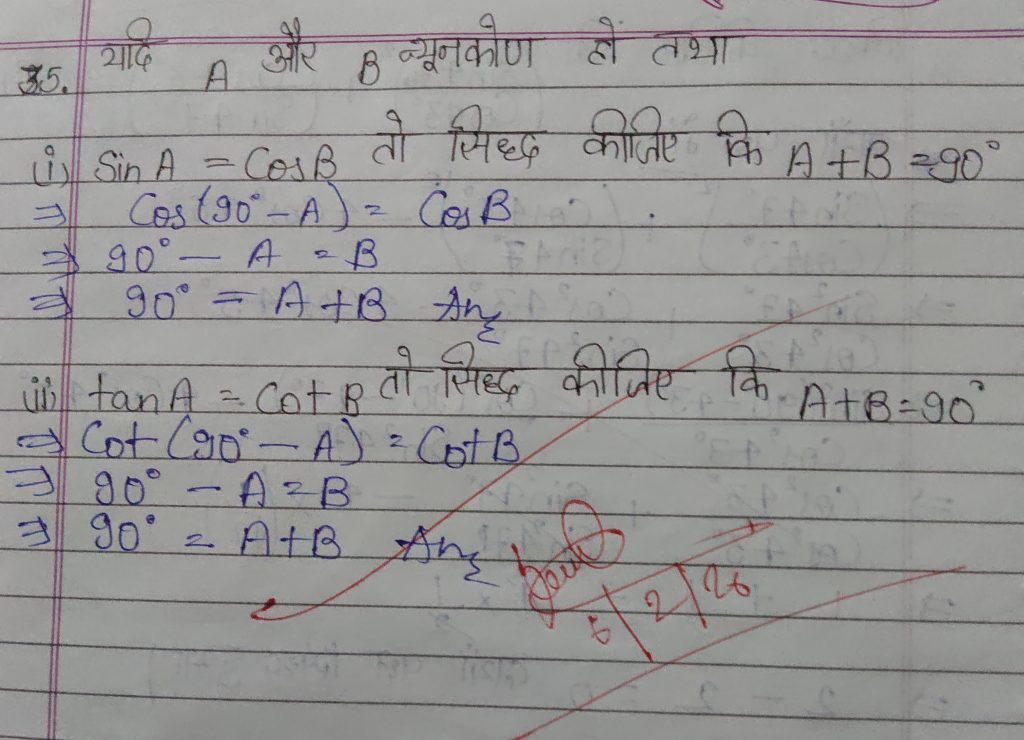 35. यदि A और B न्यूनकोण हो तथा
(i) Sin A = Cos B तो सिध्द कीजिए कि A + B = 90°
⇒ Cos (90° - A) = Cos B
⇒ 90° - A = B
⇒ 90° = A + B Ans
(ii) tan A = Cot B तो सिध्द कीजिए कि A + B = 90°
⇒ Cot (90° - A) = Cot B
⇒ 90° - A = B
⇒ 90° = A + B Ans
5/2/26